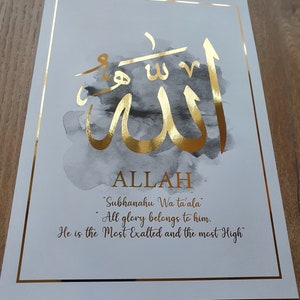 الله
ALLAH
"Subhanahu Wa ta'ala"
" All glory belongs to him.
He is the Most Exalted and the most High"